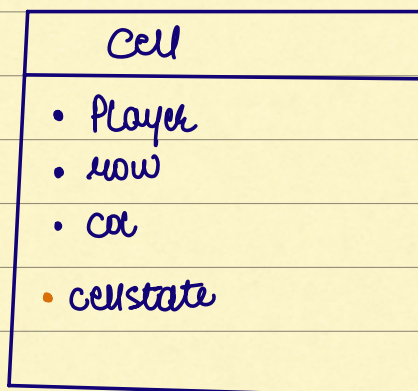 Cell
• Player
• row
• col
• cellstate